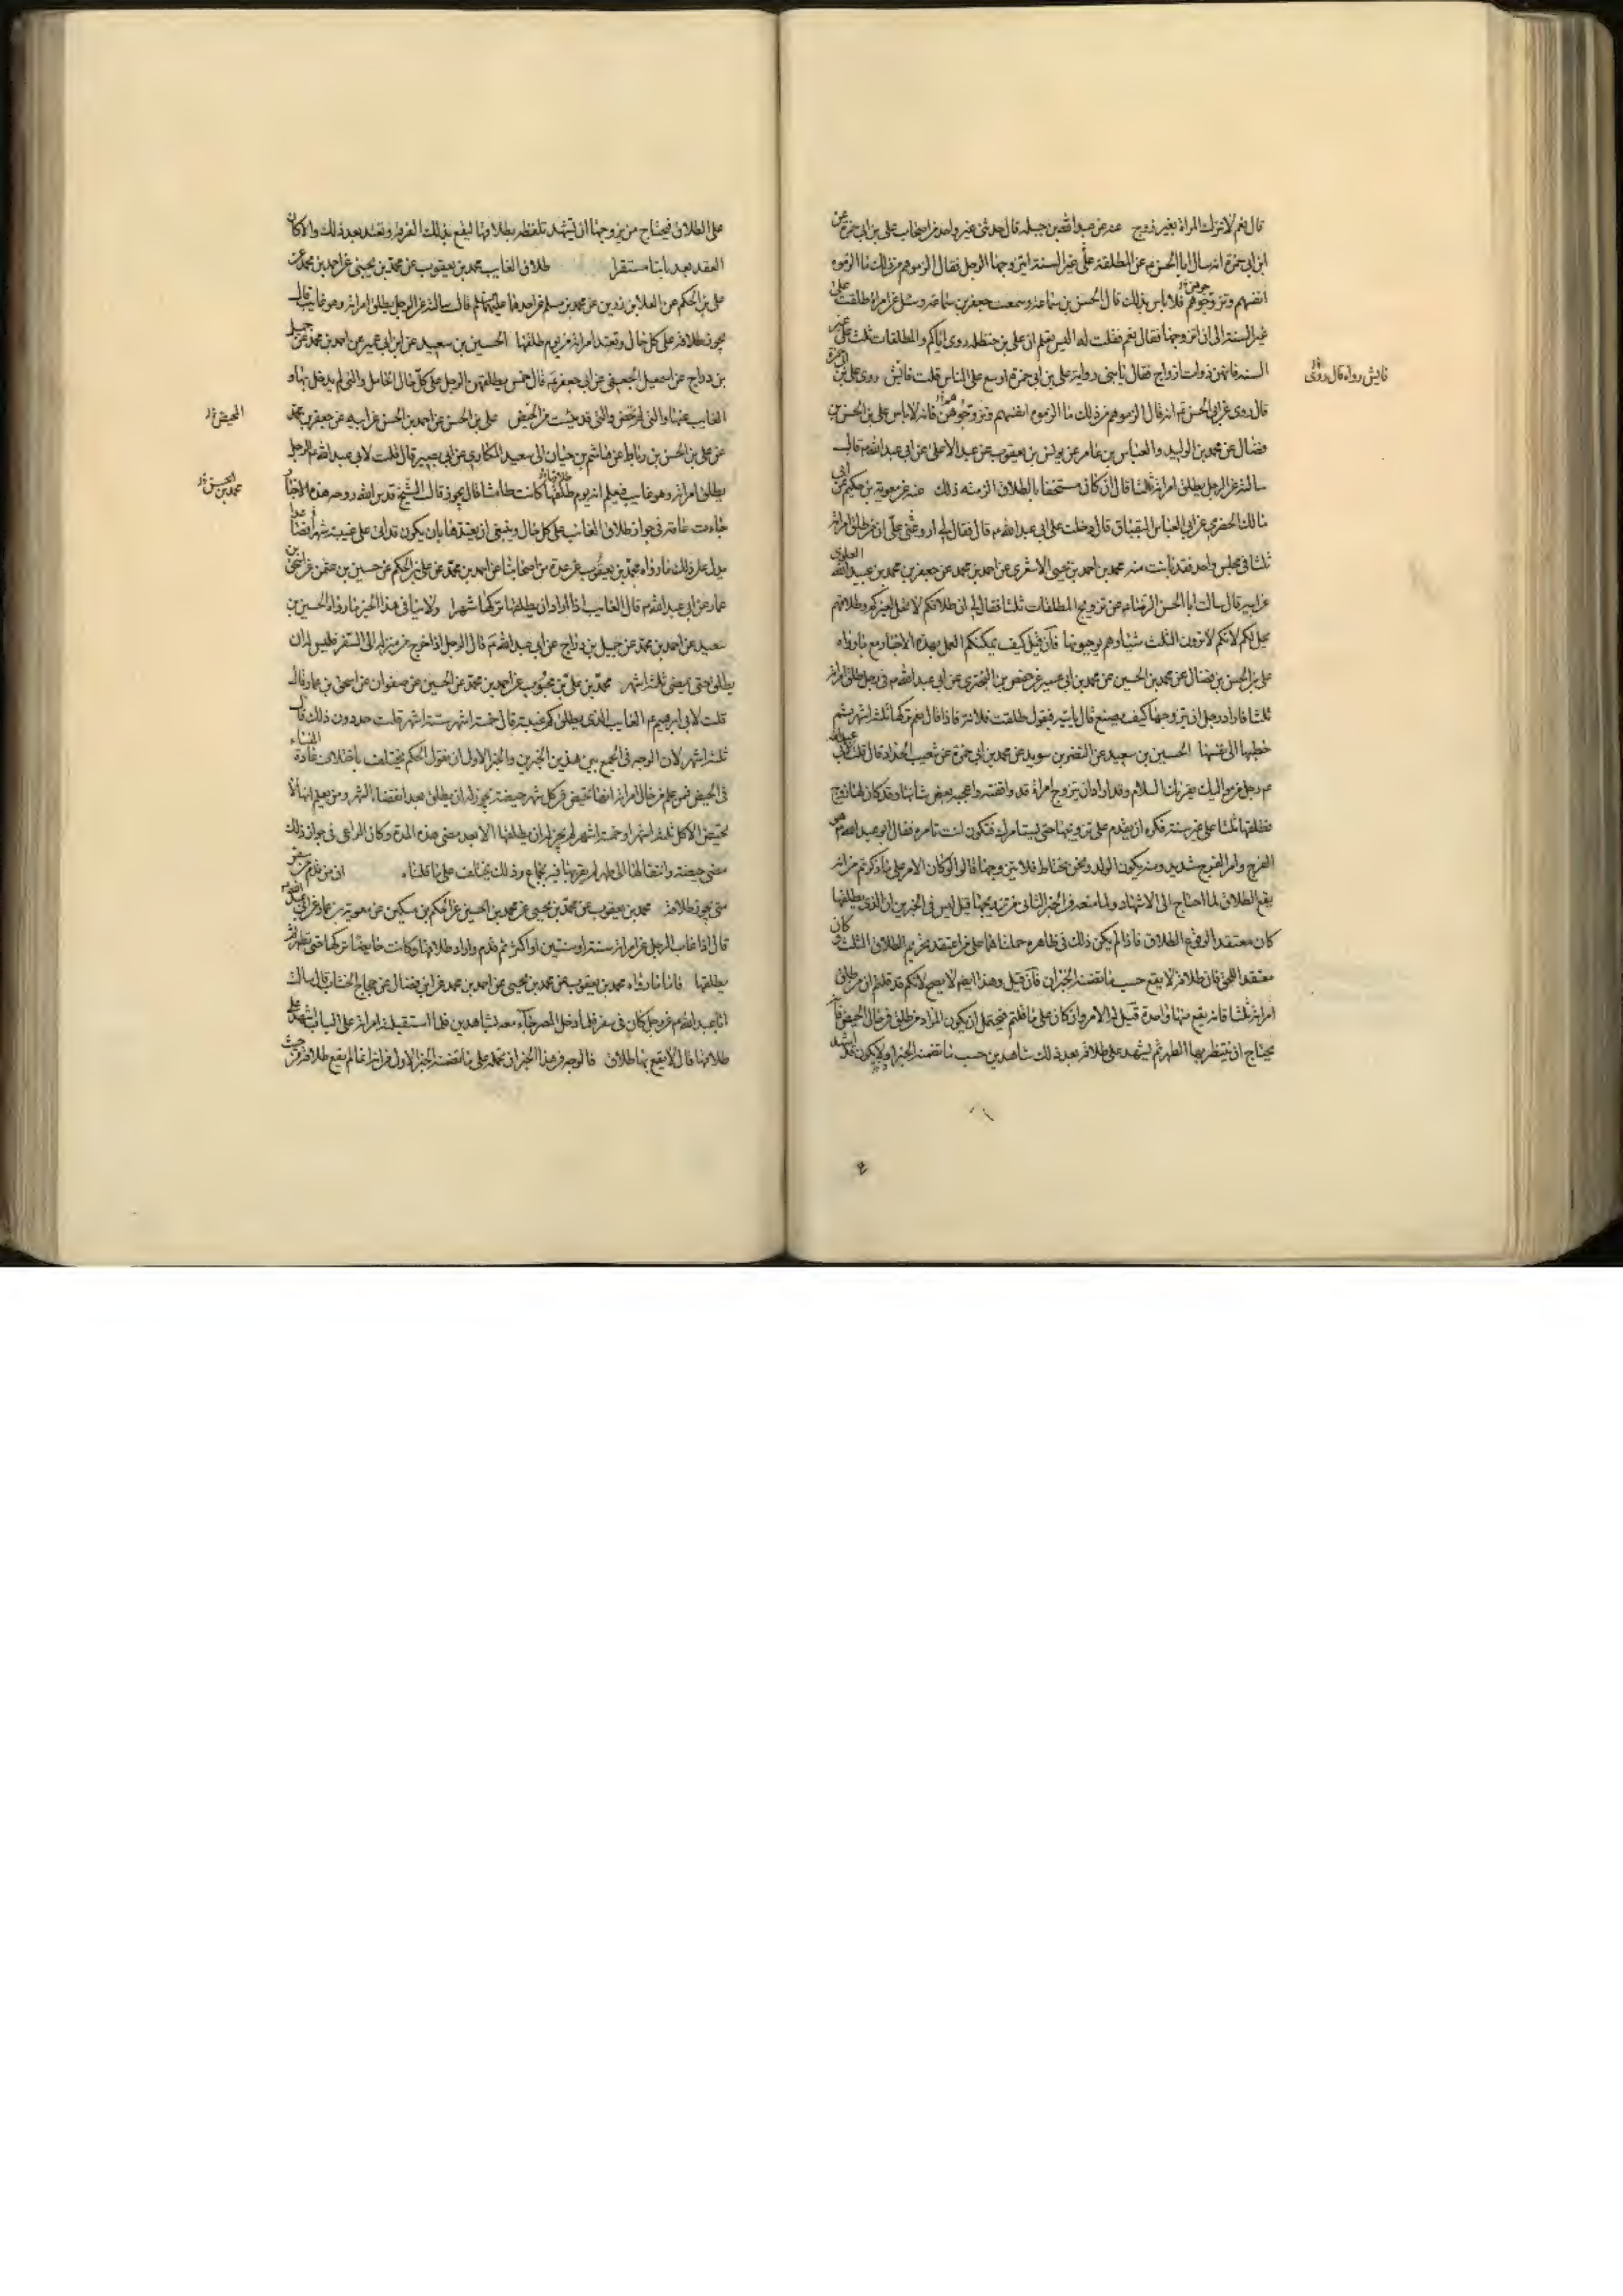 قال نعم لا تترك المراة بغير زوج عنه عن عبد الله بن جبلة قال حدثنى غير واحد من اصحاب على بن ابى حمزة عن
ابن ابى حمزة انه سال ابا الحسن م عن المطلقة على غير السنة ايتزوجها الرجل فقال الزموهم من ذلك ما الزموه
انفسهم وتزوجوهن فلا باس بذلك قال الحسن بن سماعة وسمعت جعفر بن سماعة وسئل عن امراة طلقت على
غير السنة الى ان اتزوجها فقال نعم فقلت له اليس تعلم ان على بن حنظلة روى اياكم والمطلقات ثلثا على غير
السنة فانهن ذوات ازواج فقال يا بنى رواية على بن ابى حمزة اوسع على الناس قلت فايش روى على بن ابى حمزة
فايش رواه قال روى
قال روى عن ابى الحسن ع انه قال الزموهم من ذلك ما الزموه انفسهم وتزوجوهن فانه لا باس على بن الحسن بن
فضال عن محمد بن الوليد والعباس بن عامر عن يونس بن يعقوب عن عبد الاعلى عن ابى عبد الله م قال
سالته عن الرجل يطلق امراته ثلثا قال ان كان مستخفا بالطلاق الزمته ذلك عنه عن معوية بن حكيم عن ابى
مالك الحضرمى عن ابى العباس البقباق قال دخلت على ابى عبد الله م قال فقال لى ارو عنى على ان من طلق امراته
ثلثا فى مجلس واحد فقد بانت منه محمد بن احمد بن يحيى الاشعرى عن احمد بن محمد عن جعفر بن محمد بن عبيد الله العلوى
عن ابيه قال سالت ابا الحسن الرضا م عن تزويج المطلقات ثلثا فقال لى ان طلاقكم لا تحل لغيركم وطلاقهم
يحل لكم لانكم لا ترون الثلث شيئا وهم يوجبونها فان قيل كيف يمكنكم العمل بهذه الاخبار مع ما رواه
على بن الحسن بن فضال عن محمد بن الحسين عن محمد بن ابى عمير عن حفص بن البخترى عن ابى عبد الله م فى رجل طلق امراته
ثلثا فاراد رجل ان يتزوجها كيف يصنع قال ياتيه فيقول طلقت فلانة فاذا قال نعم تركها ثلثة اشهر ثم
خطبها الى نفسها الحسين بن سعيد عن النضر بن سويد عن محمد بن ابى حمزة عن شعيب الحداد قال قلت لابى عبد الله
م رجل من مواليك يقرئك السلام وقد اراد ان يتزوج امراة قد وافقته واعجبه بعض شانها وقد كان لها زوج
فطلقها ثلثا على غير سنة وقد كره ان يقدم على تزويجها حتى يستامرك فتكون انت تامره فقال ابو عبد الله م هو
الفرج وامر الفرج شديد ومنه يكون الولد ونحن نحتاط فلا يتزوجها قالوا لو كان الامر على ما ذكرتم من انه
يقع الطلاق لما احتاج الى الاشهاد ولما منعه فى الخبر الثانى من تزويجها قيل ليس فى الخبرين ان الذى يطلقها كان
كان معتقدا لوقوع الطلاق فاذا لم يكن ذلك فى ظاهره حملناهما على من اعتقد تحريم الطلاق الثلث و
معتقدا للحق فان طلاقه لا يقع حسب ما تضمنه الخبران فان قيل وهذا ايضا لا يصح لانكم قد قلتم ان من طلق
امراته ثلثا فانه يقع منها واحدة قيل له الامر وان كان على ما قلتم فيحتمل ان يكون المراد من طلق فى حال الحيض فانه
يحتاج ان ينتظر بها الطهر ثم يشهد على طلاقه بعد ذلك شاهدين حسب ما تضمنه الخبر او لا يكون قد اشهد
على الطلاق فيحتاج من يزوجها ان يشهد تلفظه بطلاقها ليقع بذلك الفرقة وتعتد بعد ذلك والا كان
العقد بعد ثابتا مستقرا طلاق الغايب محمد بن يعقوب عن محمد بن يحيى عن احمد بن محمد عن
على بن الحكم عن العلا بن رزين عن محمد بن مسلم عن احدهما عليهما السلم قال سالته عن الرجل يطلق امراته وهو غايب قال
يجوز طلاقه على كل حال وتعتد امراته من يوم طلقها الحسين بن سعيد عن ابن ابى عمير عن احمد بن محمد عن جميل
بن دراج عن اسمعيل الجعفى عن ابى جعفر م قال خمس يطلقهن الرجل على كل حال الحامل والتى لم يدخل بها و
الغايب عنها والتى لم تحض والتى قد يئست من الحيض على بن الحسن عن احمد بن الحسن عن ابيه عن جعفر بن محمد
المحيض
عن على بن الحسن بن رباط عن هاشم بن حيان ابى سعيد المكارى عن ابى بصير قال قلت لابى عبد الله م الرجل
يطلق امراته وهو غايب فيعلم انه يوم طلقها كانت طامثا قال يجوز قال الشيخ قدس الله روحه هذه الاخبار
محمد بن الحسن
جاءت عامة فى جواز طلاق الغائب على كل حال وينبغى ان نقيدها بان يكون قد اتى على غيبته شهر فصاعدا
يدل على ذلك ما رواه محمد بن يعقوب عن عدة من اصحابنا عن احمد بن محمد عن على بن الحكم عن حسين بن عثمن عن اسحق بن
عمار عن ابى عبد الله م قال الغايب اذا اراد ان يطلقها تركها شهرا ولا ينافى هذا الخبر ما رواه الحسين بن
سعيد عن احمد بن محمد عن جميل بن دراج عن ابى عبد الله م قال الرجل اذا خرج من منزله الى السفر فليس له ان
يطلق حتى يمضى ثلثة اشهر محمد بن على بن محبوب عن احمد بن محمد عن الحسين عن صفوان عن اسحق بن عمار قال
قلت لابى ابرهيم ع الغايب الذى يطلق كم غيبته قال خمسة اشهر ستة اشهر قلت حد دون ذلك قال
ثلثة اشهر لان الوجه فى الجمع بين هذين الخبرين والخبر الاول ان نقول الحكم يختلف باختلاف عادة النساء
فى الحيض فمن علم من حال امراته انها تحيض فى كل شهر حيضة يجوز له ان يطلق بعد انقضاء الشهر ومن يعلم انها لا
تحيض الا كل ثلثة اشهر او خمسة اشهر لم يجز له ان يطلقها الا بعد مضى هذه المدة وكان المراعى فى جواز ذلك
مضى حيضة وانتقالها الى طهر لم يقربها فيه بجماع وذلك يختلف على ما قلناه ان من قدم من سفر
متى يجوز طلاقه محمد بن يعقوب عن محمد بن يحيى عن محمد بن الحسين عن الحكم بن مسكين عن معوية بن عمار عن ابى عبد الله م
قال اذا غاب الرجل عن امراته سنة او سنتين او اكثر ثم قدم واراد طلاقها وكانت حايضا تركها حتى تطهر ثم
يطلقها فاما ما رواه محمد بن يعقوب عن محمد بن يحيى عن احمد بن محمد عن ابن فضال عن حجاج الخشاب قال سالت
ابا عبد الله م عن رجل كان فى سفر فلما دخل المصر جاء معه بشاهدين فلما استقبلته امراته على الباب اشهدهما على
طلاقها قال لا يقع بها طلاق فالوجه فى هذا الخبر ان نحمله على ما تضمنه الخبر الاول من انه انما لم يقع طلاقه من حيث